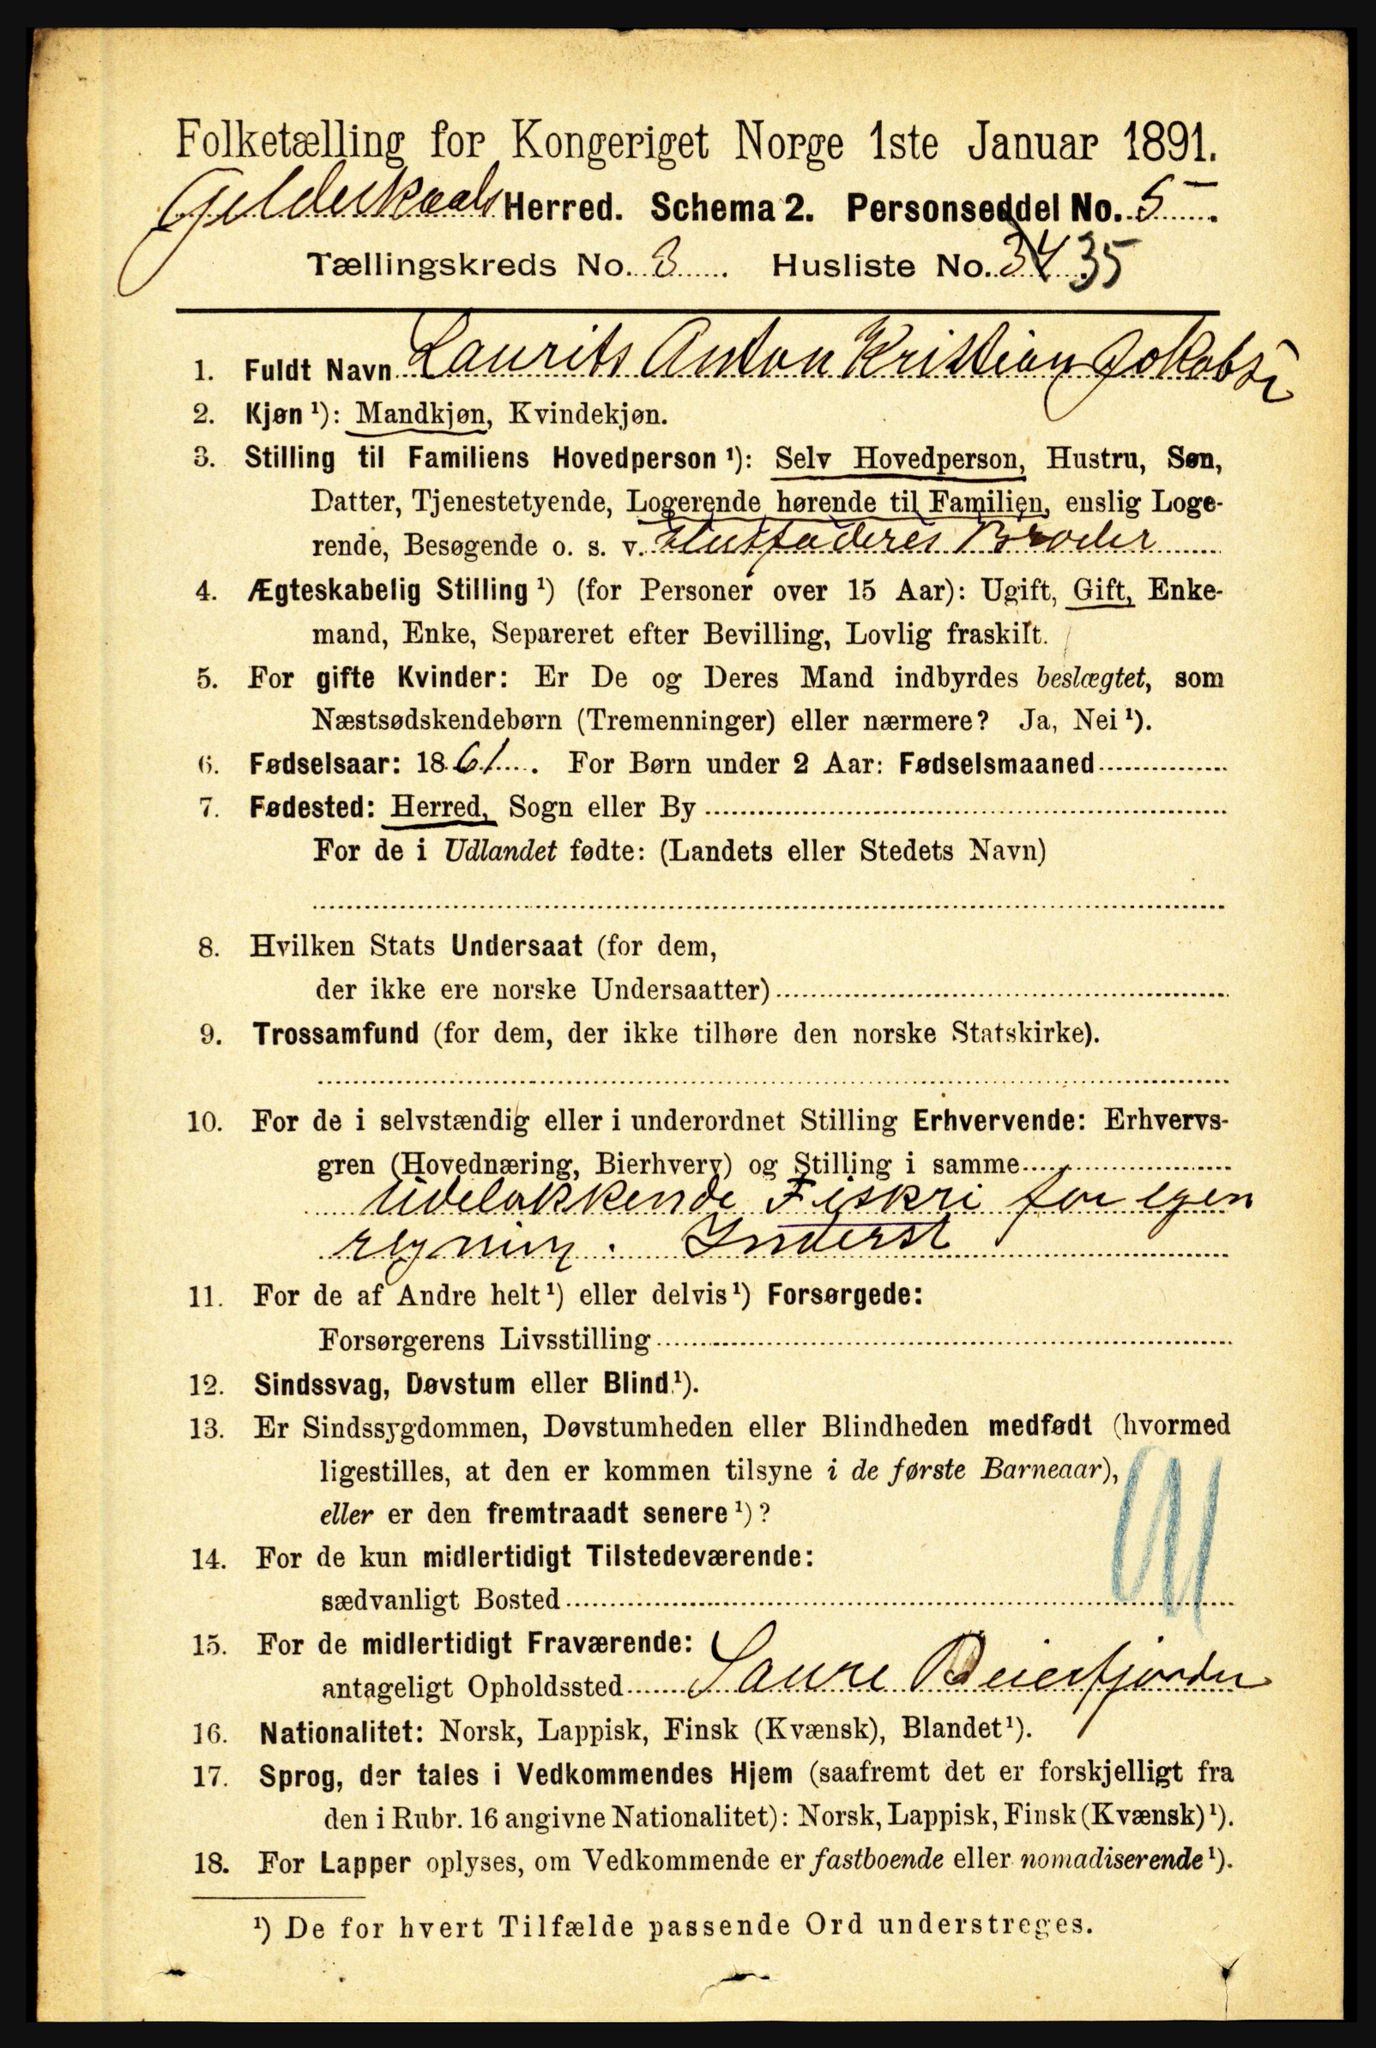 Folketælling for Kongeriget Norge 1ste Januar 1891.
Gilderskaals Herred. Schema 2. Personseddel No. 5
Tællingskreds No. 3. Husliste No. 34 35
1. Fuldt Navn Laurits Anton Kristian Jakobs
2. Kjøn ¹): Mandkjøn, Kvindekjøn.
3. Stilling til Familiens Hovedperson ¹): Selv Hovedperson, Hustru, Søn,
Datter, Tjenestetyende, Logerende hørende til Familien, enslig Loge-
rende, Besøgende o. s. v. Husfaderes Broder
4. Ægteskabelig Stilling ¹) (for Personer over 15 Aar): Ugift, Gift, Enke-
mand, Enke, Separeret efter Bevilling, Lovlig fraskilt.
5. For gifte Kvinder: Er De og Deres Mand indbyrdes beslægtet, som
Næstsødskendebørn (Tremenninger) eller nærmere? Ja, Nei ¹).
6. Fødselsaar: 1861. For Børn under 2 Aar: Fødselsmaaned
7. Fødested: Herred, Sogn eller By
For de i Udlandet fødte: (Landets eller Stedets Navn)
8. Hvilken Stats Undersaat (for dem,
der ikke ere norske Undersaatter)
9. Trossamfund (for dem, der ikke tilhøre den norske Statskirke).
10. For de i selvstændig eller i underordnet Stilling Erhvervende: Erhvervs-
gren (Hovednæring, Bierhverv) og Stilling i samme
udelukkende Fiskri for egen
regning. Inderst
11. For de af Andre helt ¹) eller delvis ¹) Forsørgede:
Forsørgerens Livsstilling
12. Sindssvag, Døvstum eller Blind ¹).
13. Er Sindssygdommen, Døvstumheden eller Blindheden medfødt (hvormed
ligestilles, at den er kommen tilsyne i de første Barneaar),
eller er den fremtraadt senere ¹)?
14. For de kun midlertidigt Tilstedeværende:
sædvanligt Bosted
15. For de midlertidigt Fraværende:
antageligt Opholdssted Saure Beierfjorden
16. Nationalitet: Norsk, Lappisk, Finsk (Kvænsk), Blandet ¹).
17. Sprog, der tales i Vedkommendes Hjem (saafremt det er forskjelligt fra
den i Rubr. 16 angivne Nationalitet): Norsk, Lappisk, Finsk (Kvænsk) ¹).
18. For Lapper oplyses, om Vedkommende er fastboende eller nomadiserende ¹).
¹) De for hvert Tilfælde passende Ord understreges.